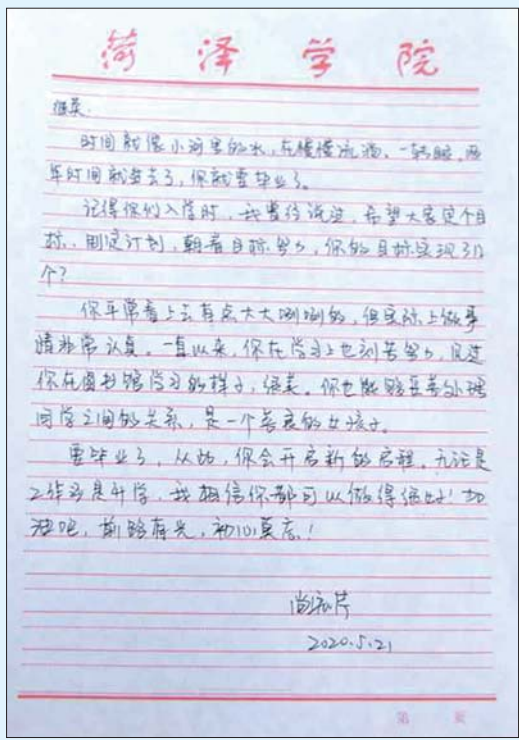 菏泽学院
时间就像小河里的水，在慢慢流淌，一转眼，两
年时间就过去了，你就要毕业了。
记得你们入学时，我曾经说过，希望大家定个目
标，制定计划，朝着目标努力，你的目标实现了几
个？
你平常看上去有点大大咧咧的，但实际上做事
情非常认真。一直以来，你在学习上也刻苦努力，见过
你在图书馆学习的样子，很美。你也能够妥善处理
同学之间的关系，是一个善良的女孩子。
要毕业了，从此，你会开启新的启程。无论是
工作还是升学，我相信你都可以做得很好！加
油吧，前路有光，初心莫忘！
2020.5.21
第 页